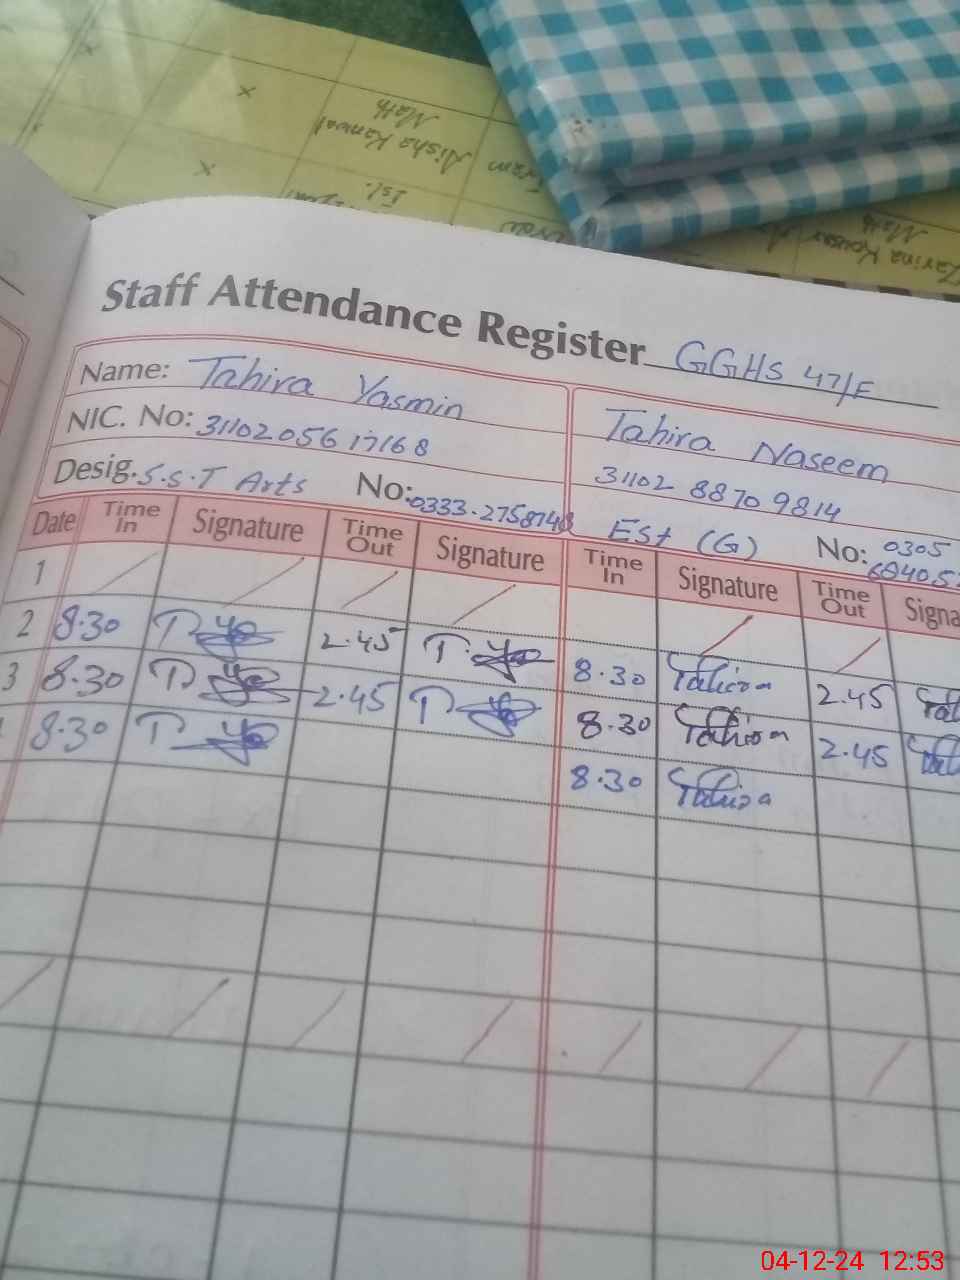 Math
Aisha Kanwal
Isl.
Math
Zarina Kousar
Staff Attendance Register GGHS 47/F
Name: Tahira Yasmin
NIC. No: 31102 056 17168
Desig. S.S.T Arts No: 0333-2758748
Tahira Naseem
31102 8870 9814
Est (G) No: 0305
Date Time In Signature Time Out Signature Time In Signature Time Out Signa
1
2 8.30 2.45 8.30 Tahira 2.45
3 8.30 2.45 8.30 Tahira 2.45
8.30 8.30 Tahira
04-12-24 12:53